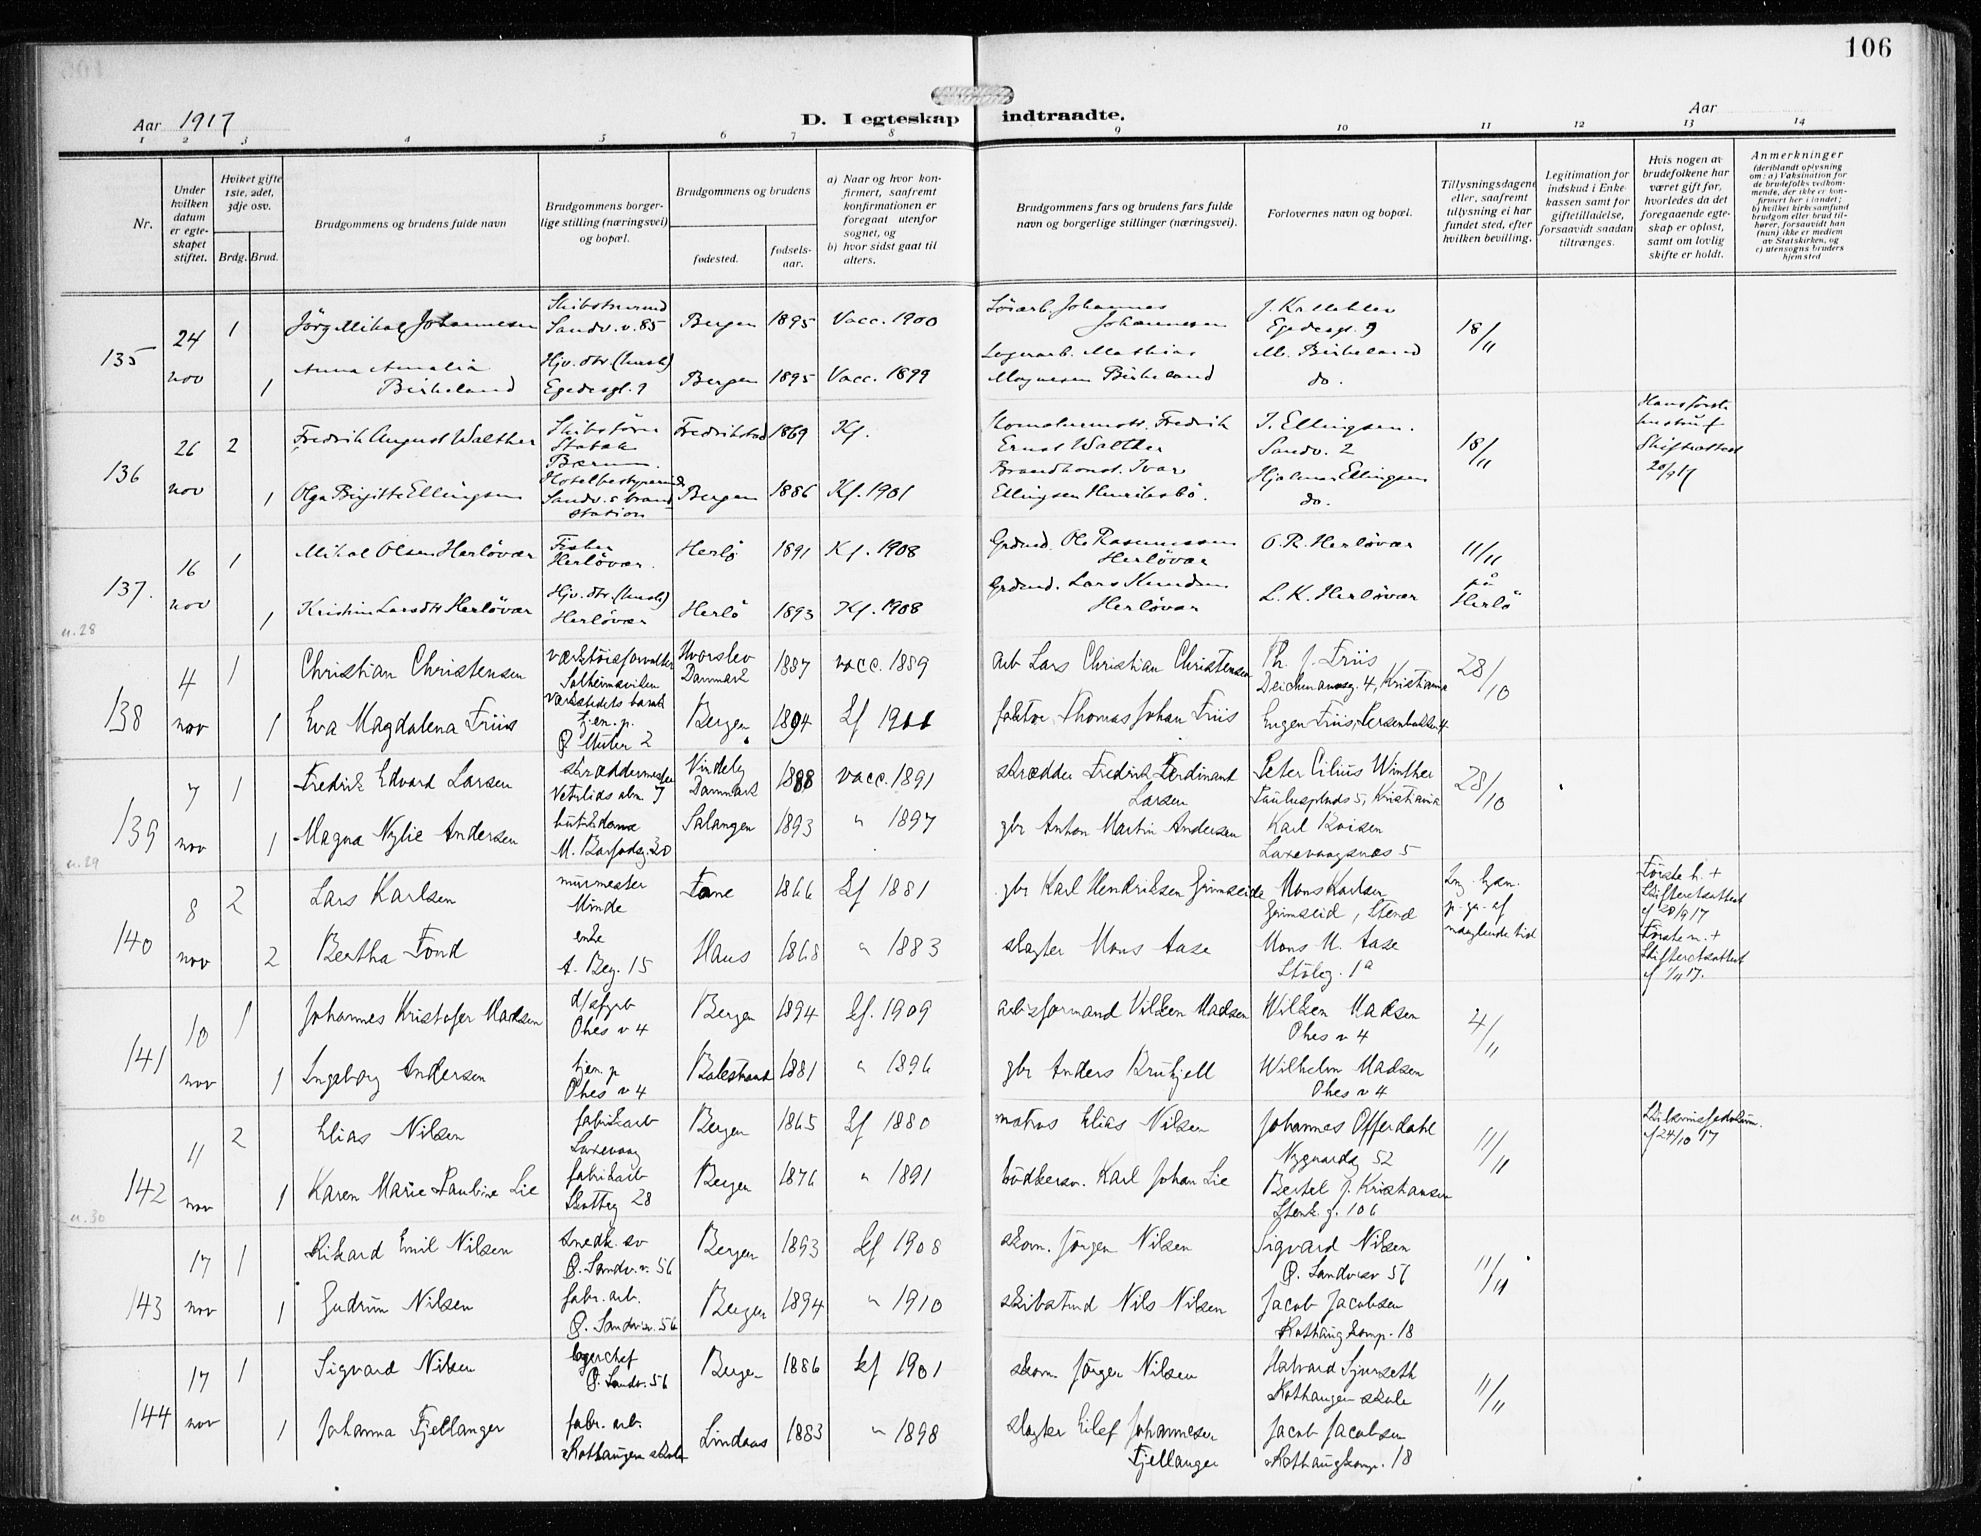 106
Aar 1917
D. I egteskap indtraadte.
Aar
1 2 3 4 5 6 7 8 9 10 11 12 13 14
Nr.
Under hvilken datum er egteskapet stiftet.
Hviket gifte 1ste, 2det, 3dje osv.
Brdg. Brud.
Brudgommens og brudens fulde navn
Brudgommens borgerlige stilling (næringsvei) og bopæl.
Brudgommens og brudens
fødested.
fødselsaar.
a) Naar og hvor konfirmert, saafremt konfirmationen er foregaat utenfor sognet, og
b) hvor sidst gaat til alters.
Brudgommens fars og brudens fars fulde navn og borgerlige stillinger (næringsvei).
Forlovernes navn og bopæl.
Tillysningsdagene eller, saafremt tilysning ei har fundet sted, efter hvilken bevilling.
Legitimation for indskud i Enkekassen samt for giftetilladelse, forsaavidt saadan tiltrænges.
Hvis nogen av brudefolkene har været gift før, hvorledes da det foregaaende egteskap er opløst, samt om lovlig skifte er holdt.
Anmerkninger
(deriblandt oplysning om: a) Vaksination for de brudefolks vedkommende, der ikke er konfirmert her i landet; b) hvilket kirkesamfund brudgom eller brud tilhører, forsaavidt han (hun) ikke er medlem av Statskirken, og c) utensogns bruders hjemsted
135 24 nov 1 Jörg Mikal Johannesen Sandv.v. 85 Bergen 1895 Vacc. 1900 Johannes Johannesen Egedesgt. 9 18/11
1 Anna Amalia Birkeland Hjv. dtr (hush) Egedesgt. 9 Bergen 1895 Vacc. 1899 Lagerarb. Mathias Magnesen Birkeland M. Birkeland do.
136 26 nov 2 Fredrik August Walther Stabæk Bærum. Fredrikstad 1869 Kf. Fredrik Ernst Walther I. Ellingsen. Sandv. 2 18/11 Hans første hustru † Skifteattest
1 Olga Birgitte Ellingsen Hotelbestyrerinde Sandv.s brandstation Bergen 1886 Kf. 1901 Brandkonst. Ivar Ellingsen Henriksbö. Hjalmar Ellingsen do.
137. 16 nov 1 Mikal Olsen Herlövær Fisker Herlövær. Herlö 1891 Kf. 1908 Grdmd. Ole Rasmussen Herlövær O. R. Herlövær 11/11 på Herlö
1 Kristine Larsdtr Herlövær Hjv. dtr (hush) Herlövær Herlö 1893 Kf. 1908 Grdmd. Lars Knudsen Herlövær L. K. Herlövær
u. 28
138 4 nov 1 Christian Christensen værktöisforvalter Solheimsviken Værkstedets barak Hvorslev Danmark 1887 vacc. 1889 arb Lars Christian Christensen Th. J. Friis Deichmansg. 4, Kristiania 28/10
1 Eva Magdalena Friis hjem. p. Ø Muler 2 Bergen 1894 kf 1911 faktor Thomas Johan Friis Eugen Friis, Persenbakken 4
139 7 nov 1 Fredrik Edvard Larsen skræddermester Vetrlids alm. 7 Vindeby Danmark 1888 vacc. 1891 skrædder Fredrik Ferdinant Larsen Peter Cilius Winther Paulusplads 5, Kristiania 28/10
1 Magna Nylie Andersen butikdame M. Barfodsg. 20 Salangen 1893 " 1897 gbr Anton Martin Andersen Karl Boisen Laxevaagsnes 5
u. 29
140 8 nov 2 Lars Karlsen murmester Minde Fane 1866 kf 1881 gbr Karl Hendriksen Grimseide Mons Karlsen Grimseid, Stend p. gr. af manglende tid Første h. + Skifteretsattest af 20/9 17
2 Bertha Fond enke A. Beg. 15 Haus 1868 " 1883 slagter Mons Aase Mons M. Aase Stöleg. 1a Første m. + Skifteretsattest af 1/11 17.
141 10 nov 1 Johannes Kristofer Madsen Ohes v 4 Bergen 1894 kf. 1909 arbeisformand Vilken Madsen Wilken Madsen Ohes v 4 4/11
1 Ingeborg Andersen hjem. p Ohes v 4 Balestrand 1881 " 1896 gbr Anders Bruhjell Wilhelm Madsen Ohes v 4
142 11 nov 2 Elias Nilsen fabrikarb Laxevaag Bergen 1865 kf 1880 matros Elias Nilsen Johannes Offerdahl Nygaardsg 52 11/11 af 24/10 17
1 Karen Marie Pauline Lie fabrikarb Skotteg 28 Bergen 1876 " 1891 bödkersv. Karl Johan Lie Bertel J. Kristiansen Stenk. g. 106
u. 30
143 17 nov 1 Rikard Emil Nilsen snedk. sv Ø. Sandv. v. 56 Bergen 1893 kf 1908 skom. Jörgen Nilsen Sigvard Nilsen Ø. Sandvesv 56 11/11
1 Gudrun Nilsen fabr. arb. Ø. Sandv. v. 56 Bergen 1894 " 1910 skibstmd Nils Nilsen Jacob Jacobsen Rothaugkomp. 18
144 17 nov 1 Sigvard Nilsen lagerchef Ø. Sandv. 56 Bergen 1886 kf 1901 skom. Jörgen Nilsen Halvard Gjerseth Rothaugen skole 11/11
1 Johanna Fjellanger fabr. arb. Rothaugen skole Lindaas 1883 " 1898 slagter Eilef Johannesen Fjellanger Jacob Jacobsen Rothaugkomp. 18